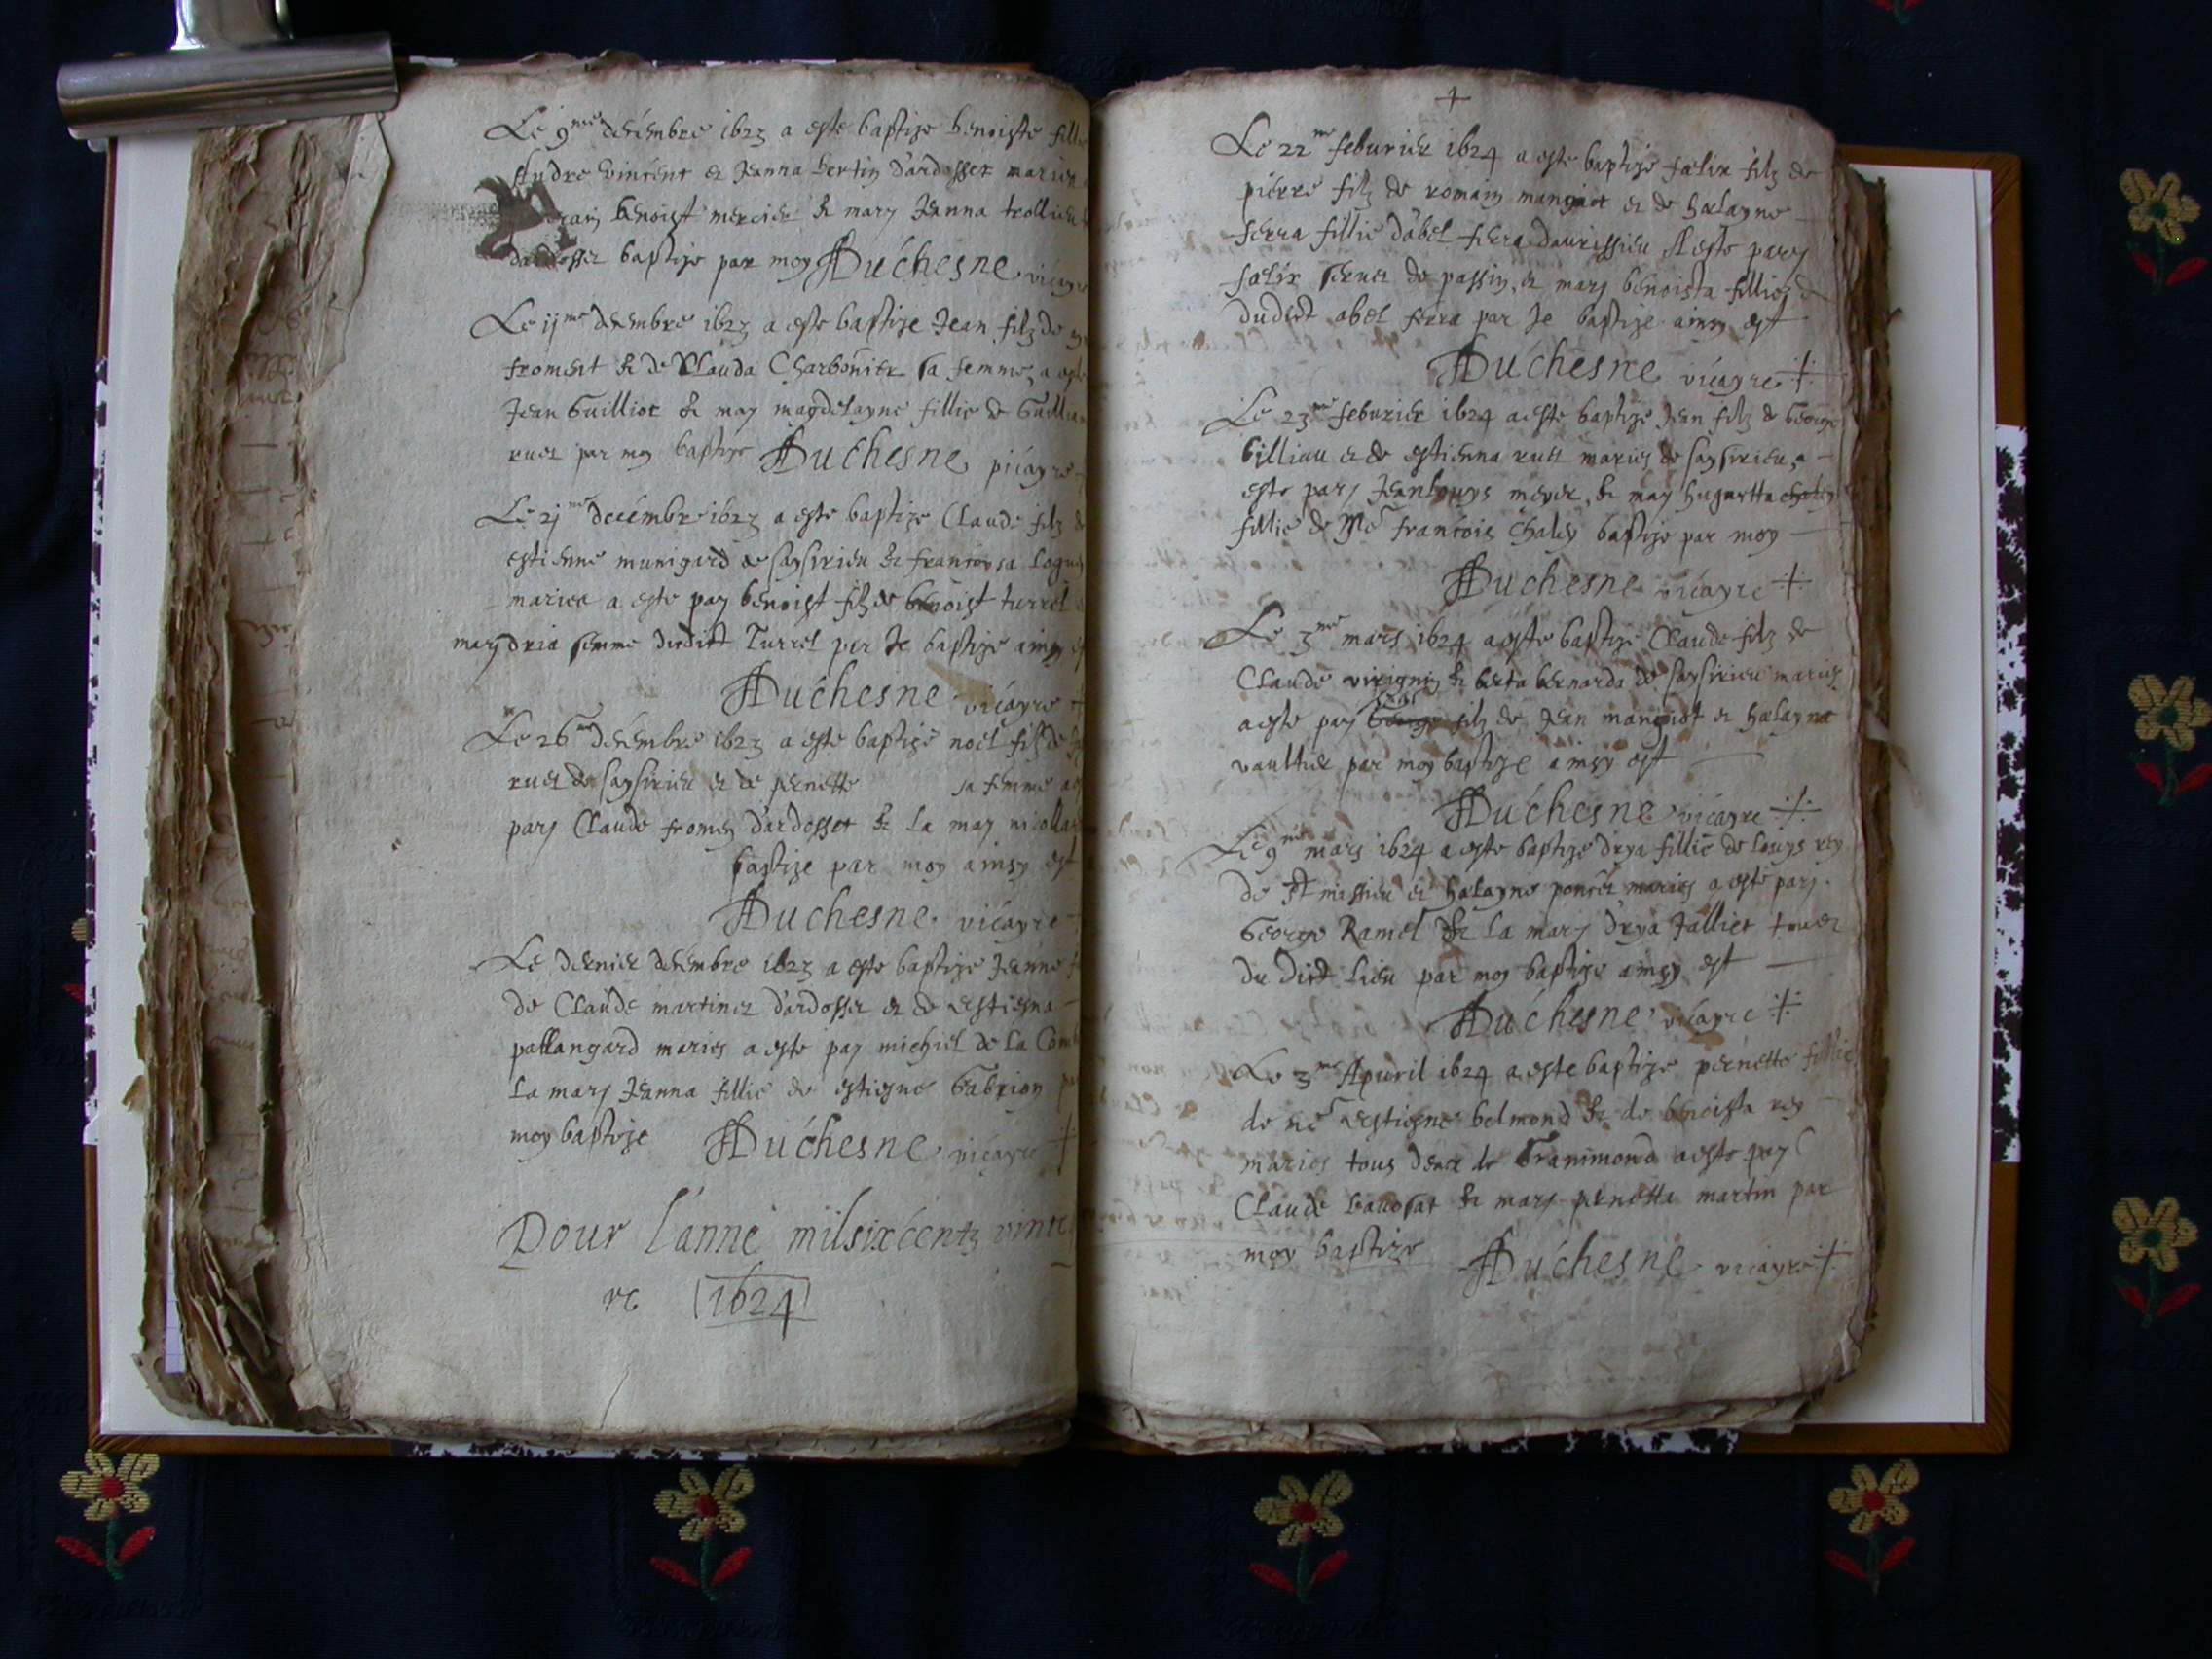 Le 9me decembre 1623 a este baptize benoiste fille
Andre vincent et Jeanna bertin d'ardosset maries
benoist mercier & mary Jeanna trollieu
baptize par moy Duchesne vicayre
Le ij me decembre 1623 a este baptize Jean filz de
froment & de Clauda Charbonier sa femme, a este
Jean Guilliot & may magdelayne fillie de
ruet par moy baptize Duchesne vicayre
Le 2j me decembre 1623 a este baptize Claude filz de
estienne munigard de saysirieu & francoysa
maries a este pay benoist filz de benoist turrel
mary dria femme dudict Turrel per Je baptize ainsy est
Duchesne vicayre
Le 26me decembre 1623 a este baptize noel filz de
ruet de saysirieu et de pernette sa femme a este
pary Claude froment d'ardosset & la may
baptize par moy ainsy est
Duchesne vicayre
Le dernier decembre 1623 a este baptize Jeanne
de Claude martinet d'ardosset et de estiegna
pallangard maries a este pay michiel de la
la mary Jeanna fillie de estiegne Gabrion
moy baptize Duchesne vicayre
Pour l'anne milsixcentz vint
1624
Le 22me feburier 1624 a este baptize fælix filz de
pierre filz de romain mangiot et de hælayne
ferra fillie d'abel ferra daurissieu A este pary
fælix de passin, et mary benoista fillie
dudict abel ferra par Je baptize ainsy est
Duchesne vicayre
Le 23me feburier 1624 a este baptize Jean filz de George
Gilliau et de estienna ruet maries de saysirieu, a
este pary Jean Louys meyer, & may hugartta
fillie de Me francois Chaley baptize par moy
Duchesne vicayre
Le 3me mars 1624 a este baptize Claude filz de
Claude virignin & berta bernarda de saysirieu maries
a este pay filz de Jean mangiot et hælayne
vaultier par moy baptize ainsy est
Duchesne vicayre
Le 9me mars 1624 a este baptize drya fillie de Louys rey
de St missieu et hælayne poncet maries a este pary
George Ramel & la mary drya Jalliet
du dict lieu par moy baptize ainsy est
Duchesne vicayre
Le 3me Apuril 1624 a este baptize pernette fillie
de estiegne belmond & de benoista rey
maries tous deux de a este pay
Claude & mary pernetta martin par
moy baptize Duchesne vicayre